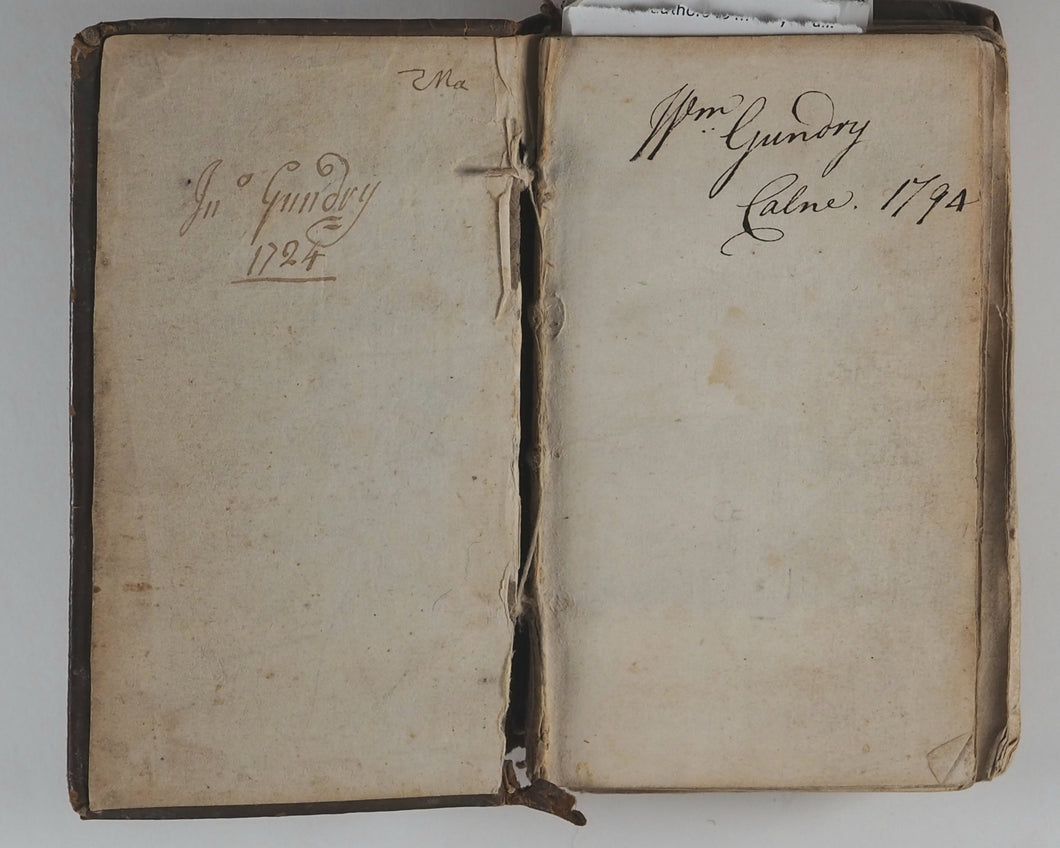 Jnº Gundry
1724
Wm Gundry
Calne. 1794